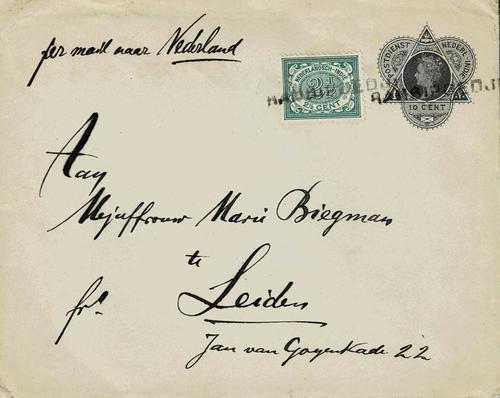 per mail naar Nederland
NEDERLANDSCH-INDIË
2½
2½ CENT
POSTDIENST NEDERL-INDIE
10 CENT
Aan
Mejuffrouw Marie Biegman
te
Leiden
frs.
Jan van Goyenkade 22